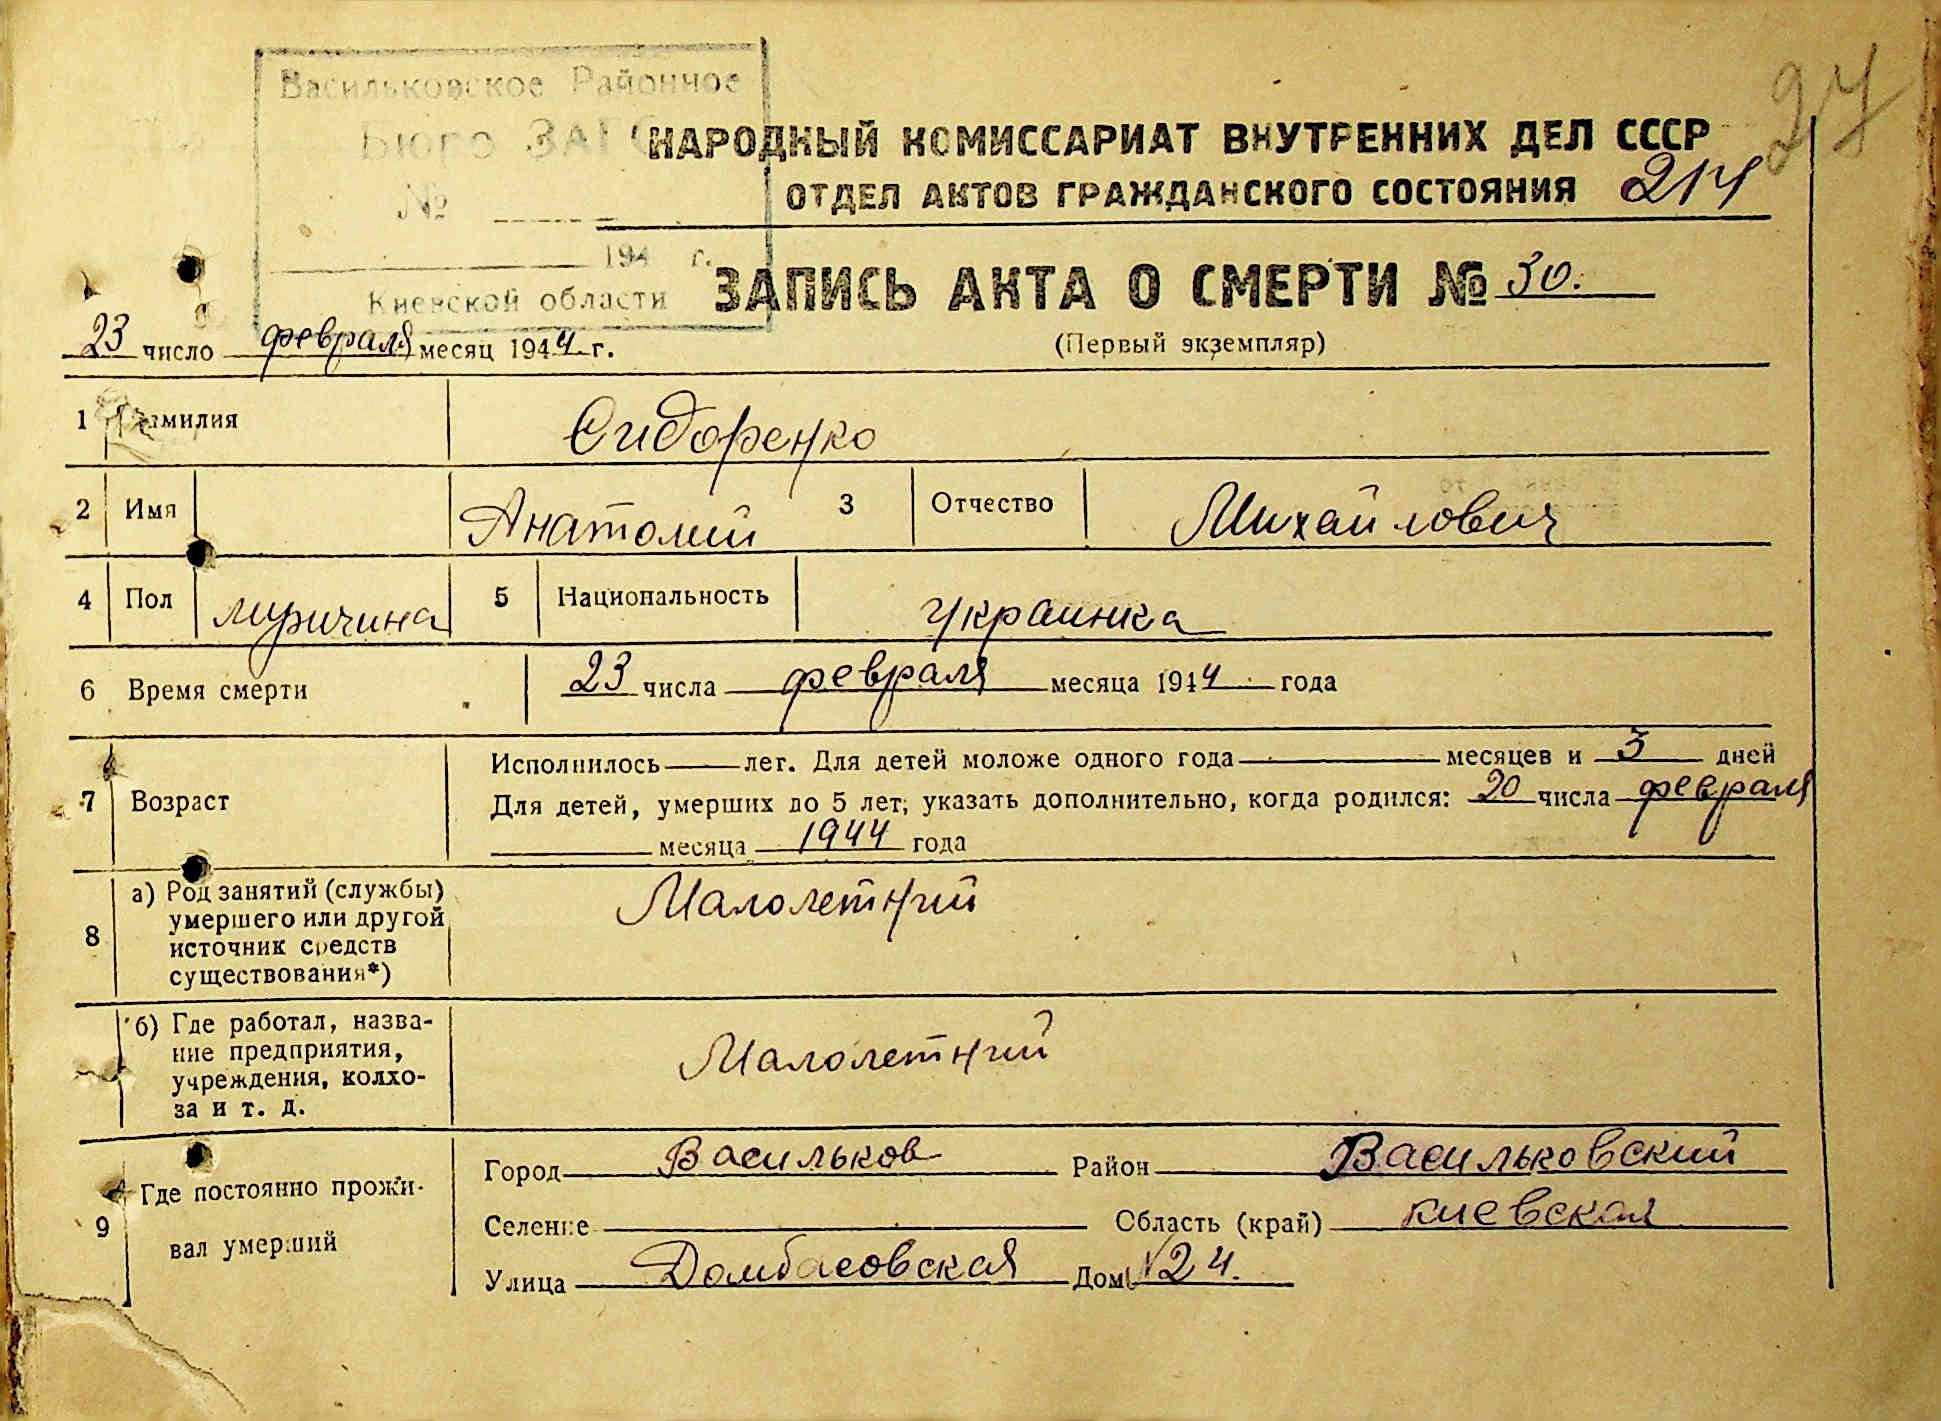 Васильковское Районное
Бюро ЗАГС
№
194 г.
Киевской области
27
НАРОДНЫЙ КОМИССАРИАТ ВНУТРЕННИХ ДЕЛ СССР
ОТДЕЛ АКТОВ ГРАЖДАНСКОГО СОСТОЯНИЯ 214
ЗАПИСЬ АКТА О СМЕРТИ № 30.
23 число февраля месяц 1944 г. (Первый экземпляр)
1 Фамилия Сидоренко
2 Имя Анатолий 3 Отчество Михайлович
4 Пол мужчина 5 Национальность украинка
6 Время смерти 23 числа февраля месяца 1944 года
7 Возраст
Исполнилось — лет. Для детей моложе одного года — месяцев и 3 дней
Для детей, умерших до 5 лет, указать дополнительно, когда родился: 20 числа февраля
месяца 1944 года
8 а) Род занятий (службы)
умершего или другой
источник средств
существования*)
Малолетний
б) Где работал, назва-
ние предприятия,
учреждения, колхо-
за и т. д.
Малолетний
9 Где постоянно прожи-
вал умерший
Город Васильков Район Васильковский
Селение Область (край) Киевская
Улица Домбасовская Дом № 24.